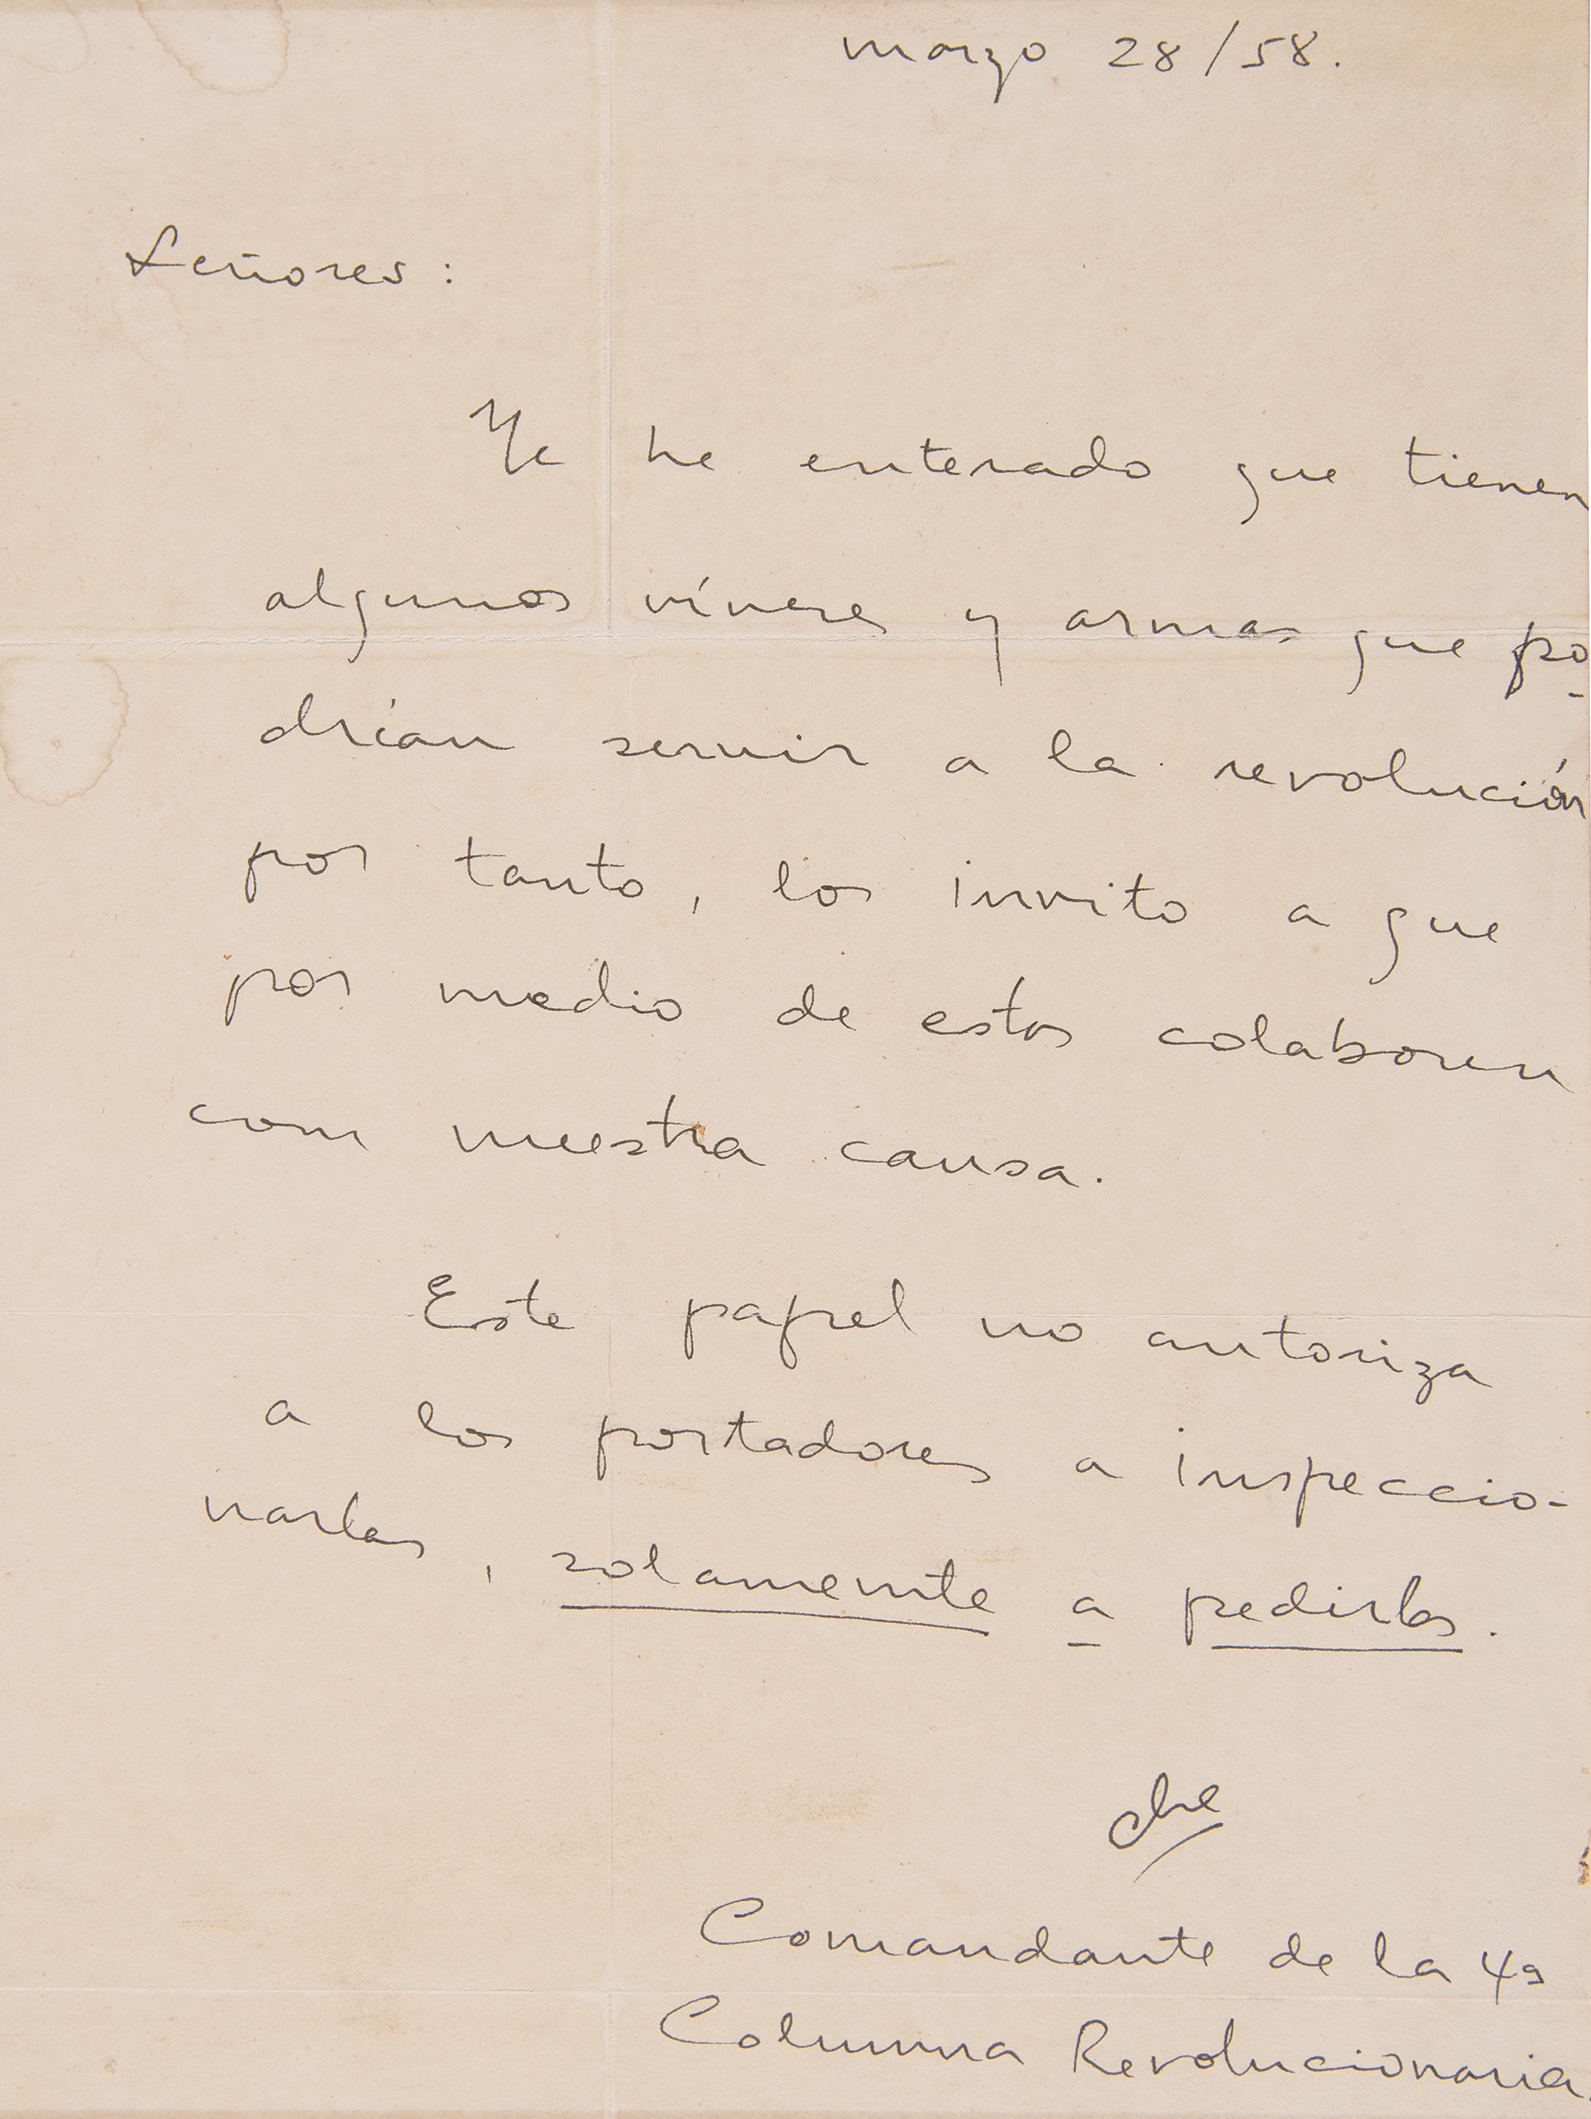 marzo 28/58.
Señores:
Me he enterado que tienen
algunos víveres y armas que po-
drían servir a la revolución
por tanto, los invito a que
por medio de estos colaboren
con nuestra causa.
Este papel no autoriza
a los portadores a inspeccio-
narlas, solamente a pedirlos.
che
Comandante de la 4a
Columna Revolucionaria.